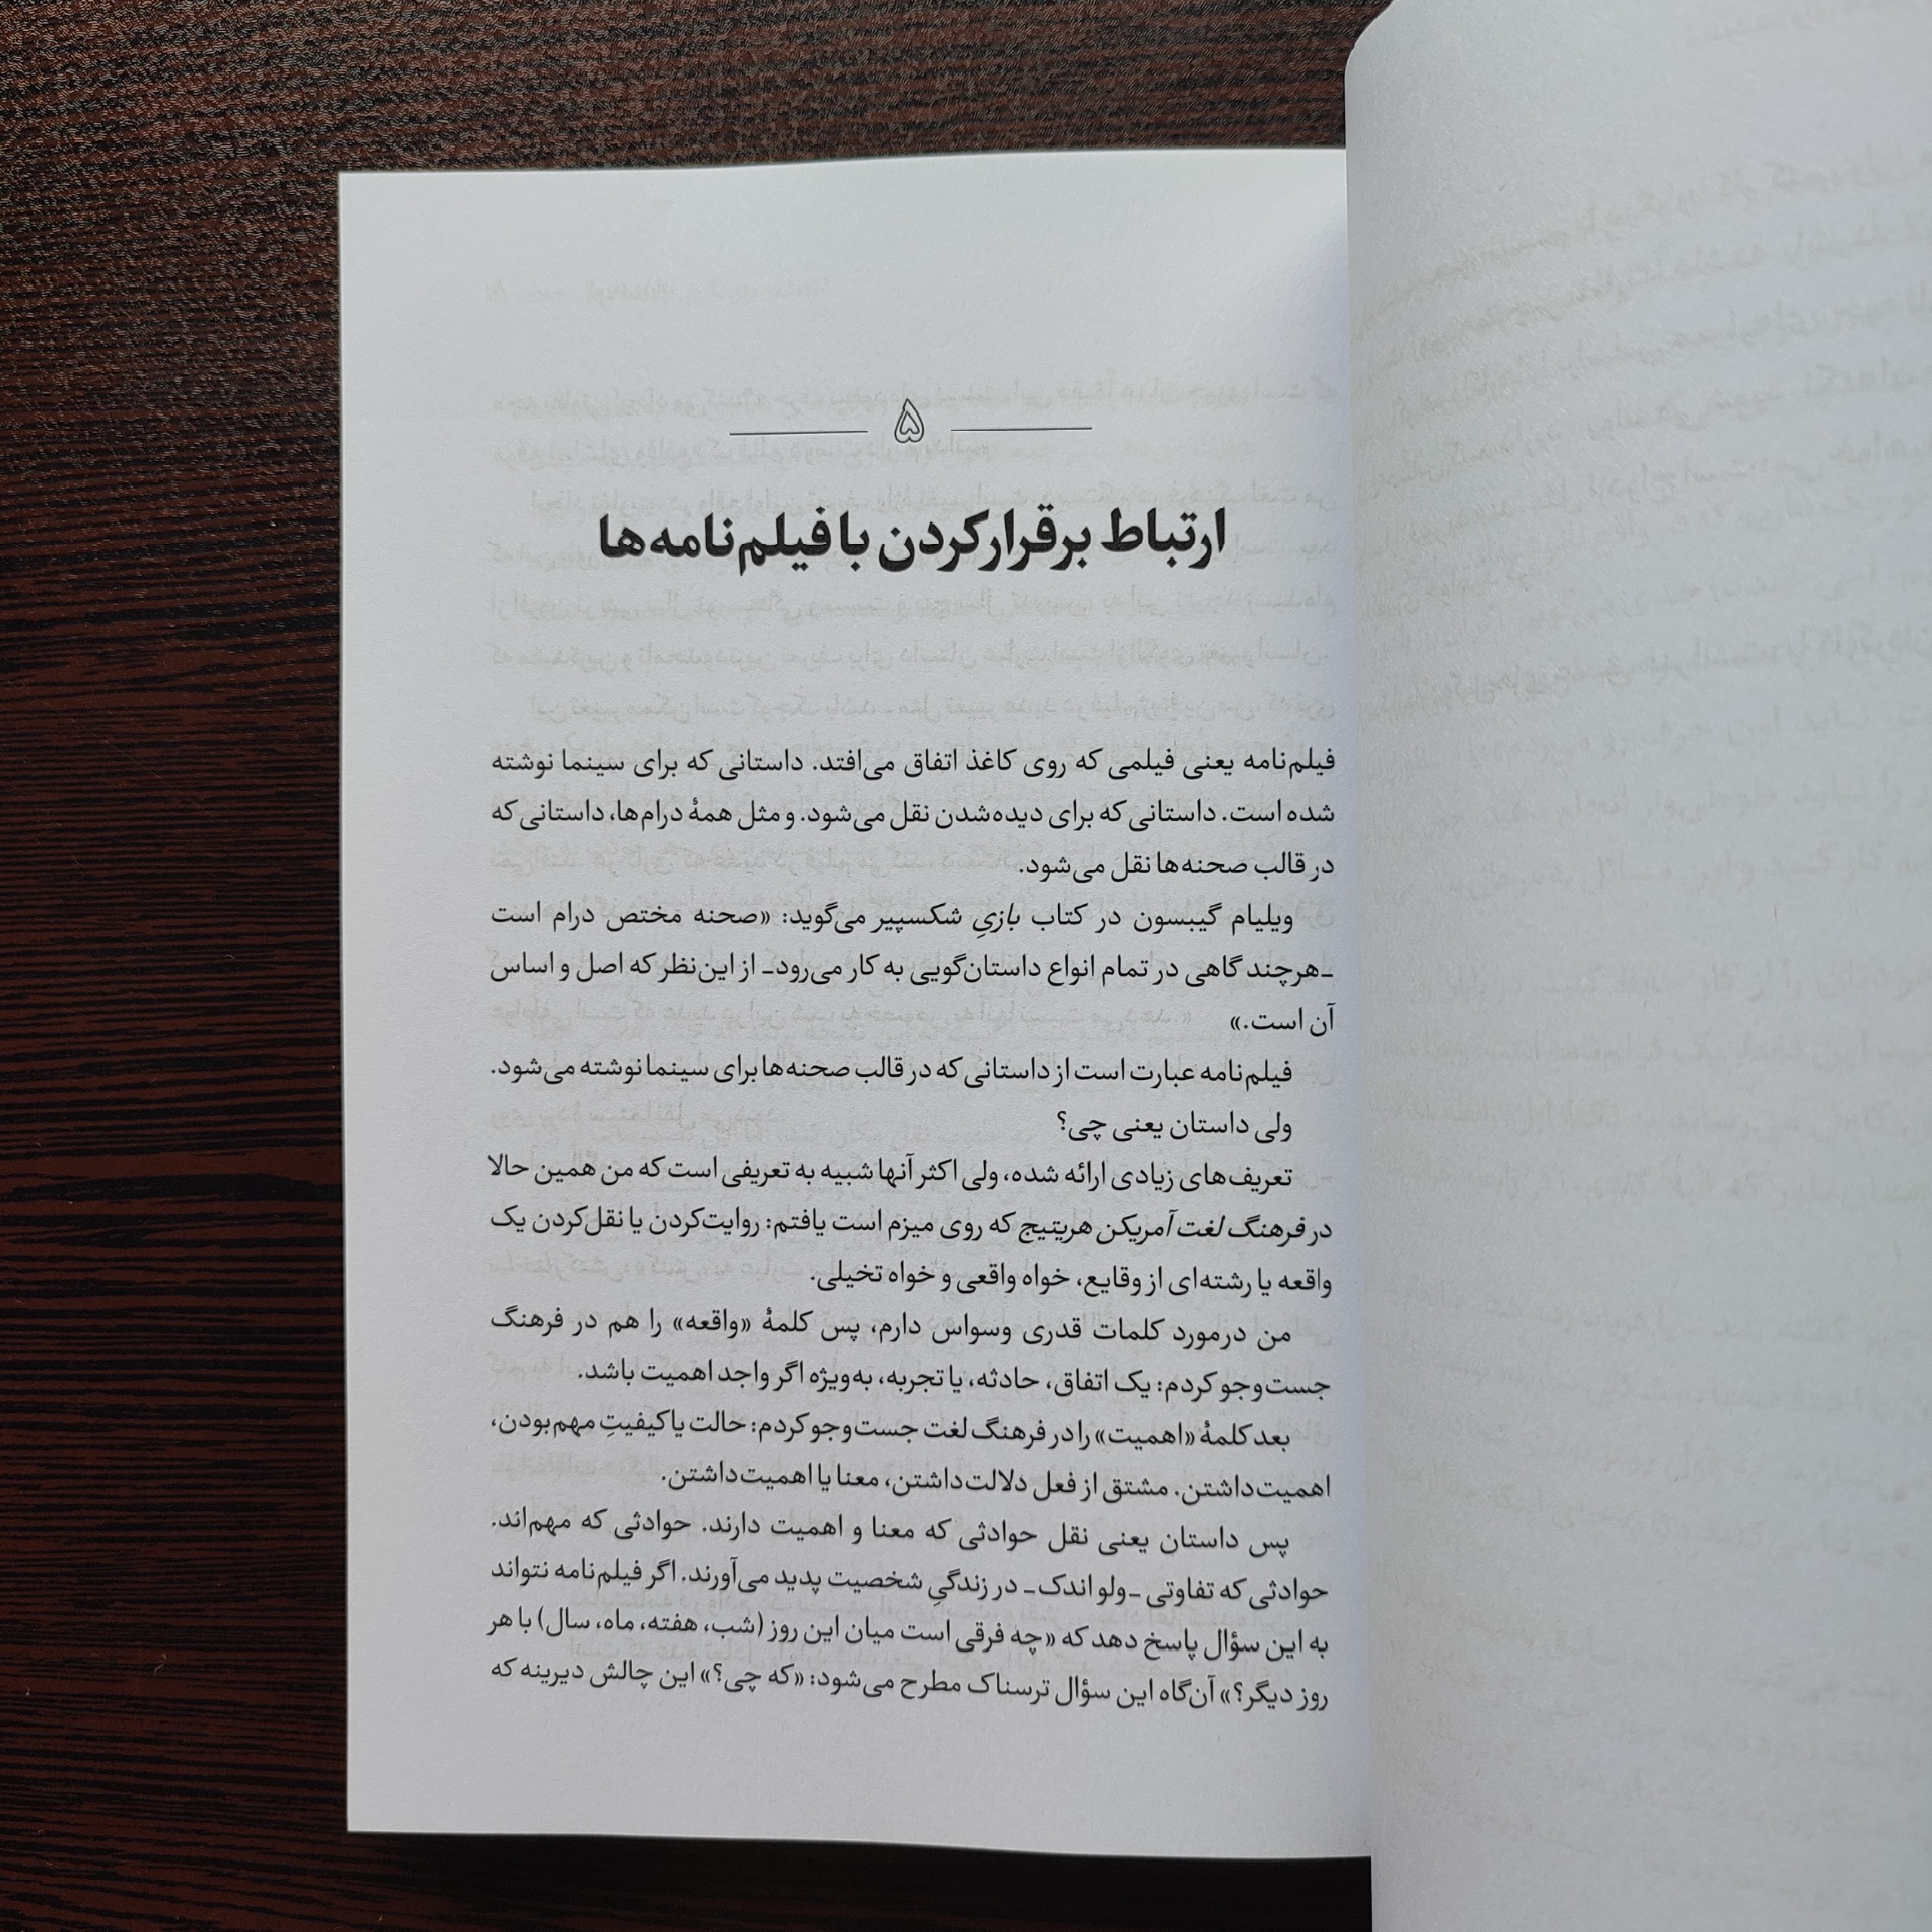 ۵
ارتباط برقرارکردن با فیلم‌نامه‌ها
فیلم‌نامه یعنی فیلمی که روی کاغذ اتفاق می‌افتد. داستانی که برای سینما نوشته
شده است. داستانی که برای دیده‌شدن نقل می‌شود. و مثل همهٔ درام‌ها، داستانی که
در قالب صحنه‌ها نقل می‌شود.
ویلیام گیبسون در کتاب بازیِ شکسپیر می‌گوید: «صحنه مختص درام است
ـ هرچند گاهی در تمام انواع داستان‌گویی به کار می‌رود ـ از این‌نظر که اصل و اساس
آن است.»
فیلم‌نامه عبارت است از داستانی که در قالب صحنه‌ها برای سینما نوشته می‌شود.
ولی داستان یعنی چی؟
تعریف‌های زیادی ارائه شده، ولی اکثر آنها شبیه به تعریفی است که من همین حالا
در فرهنگ لغت آمریکن هریتیج که روی میزم است یافتم: روایت‌کردن یا نقل‌کردن یک
واقعه یا رشته‌ای از وقایع، خواه واقعی و خواه تخیلی.
من درمورد کلمات قدری وسواس دارم، پس کلمهٔ «واقعه» را هم در فرهنگ
جست‌وجو کردم: یک اتفاق، حادثه، یا تجربه، به‌ویژه اگر واجد اهمیت باشد.
بعد کلمهٔ «اهمیت» را در فرهنگ لغت جست‌وجو کردم: حالت یا کیفیتِ مهم‌بودن،
اهمیت‌داشتن. مشتق از فعل دلالت‌داشتن، معنا یا اهمیت‌داشتن.
پس داستان یعنی نقل حوادثی که معنا و اهمیت دارند. حوادثی که مهم‌اند.
حوادثی که تفاوتی ـ ولو اندک ـ در زندگیِ شخصیت پدید می‌آورند. اگر فیلم‌نامه نتواند
به این سؤال پاسخ دهد که «چه فرقی است میان این روز (شب، هفته، ماه، سال) با هر
روز دیگر؟» آن‌گاه این سؤال ترسناک مطرح می‌شود: «که چی؟» این چالش دیرینه که